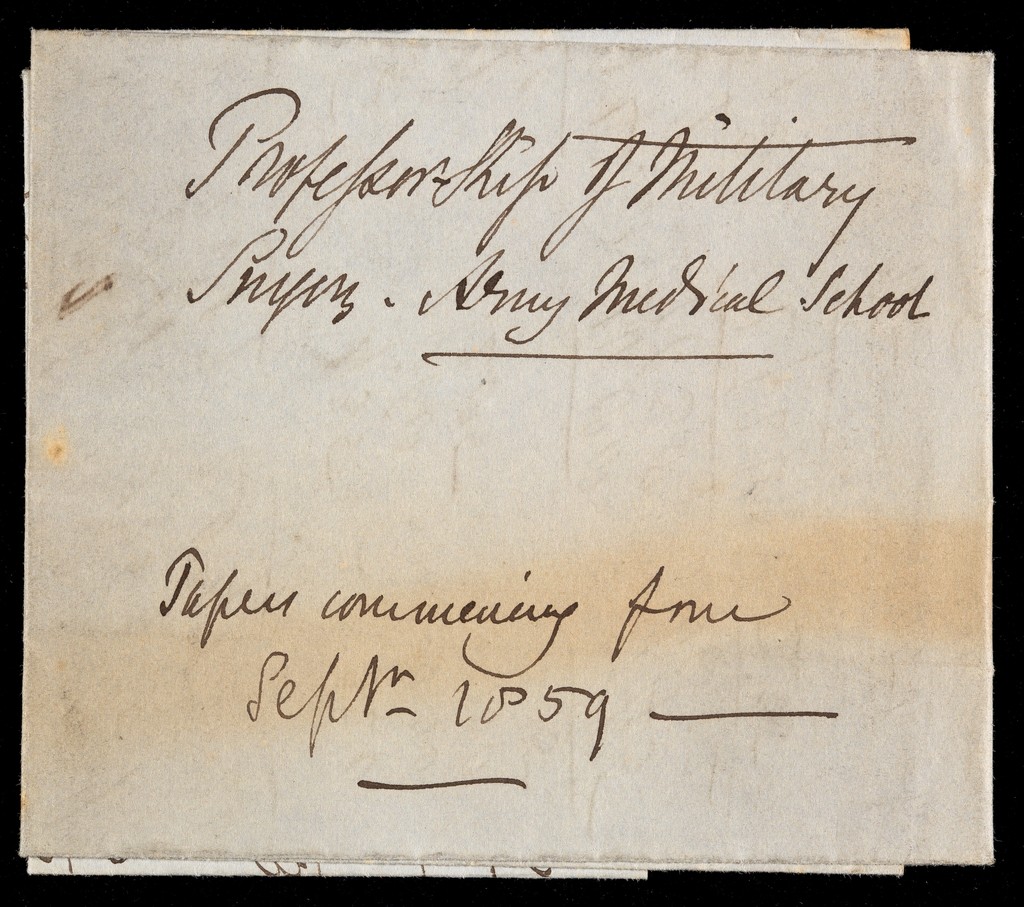 Professorship of Military
Surgery - Army Medical School
Papers commencing from
Septr 1859